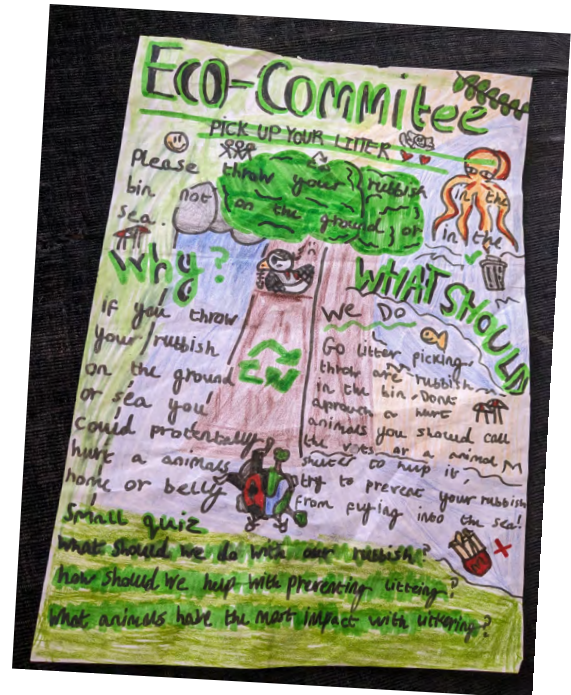 Eco-Commitee
PICK UP YOUR LITTER
Please throw your rubbish in the
bin not on the ground or in the
sea.
Why?
if you throw
your rubbish
on the ground
or sea you
could protentally
hurt a animals
home or belly
WHAT SHOULD
We Do
Go litter picking,
throw are rubbish
in the bin. Dont
aproach a hurt
animals you should call
the vets or a animal
shelter to help it,
try to prevent your rubbish
from flying into the sea!
Small quiz
What should we do with our rubbish?
how should we help with preventing littering?
What animals have the most impact with littering?